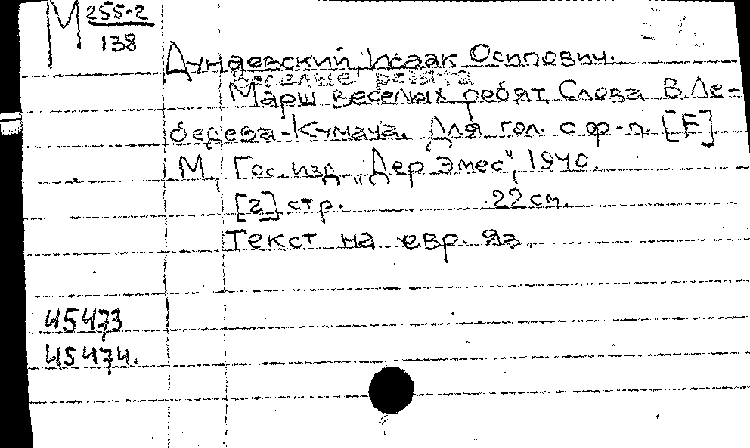 М 255-2
138
Дунаевский Исаак Осипович.
Веселые ребята
Марш веселых ребят. Слова В. Ле-
бедева-Кумача. Для гол. с ф-п. [F]
М., Гос. изд. „Дер Эмес", 1940.
[2] стр. 22 см.
Текст на евр. яз.
45473
45474.